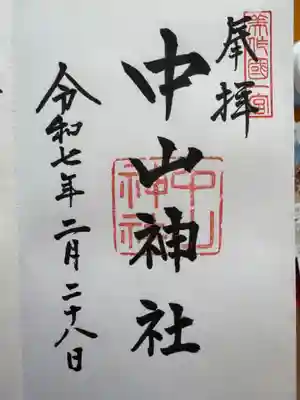 美作國一宮
奉拝
中山神社
中山神社
令和七年二月二十八日